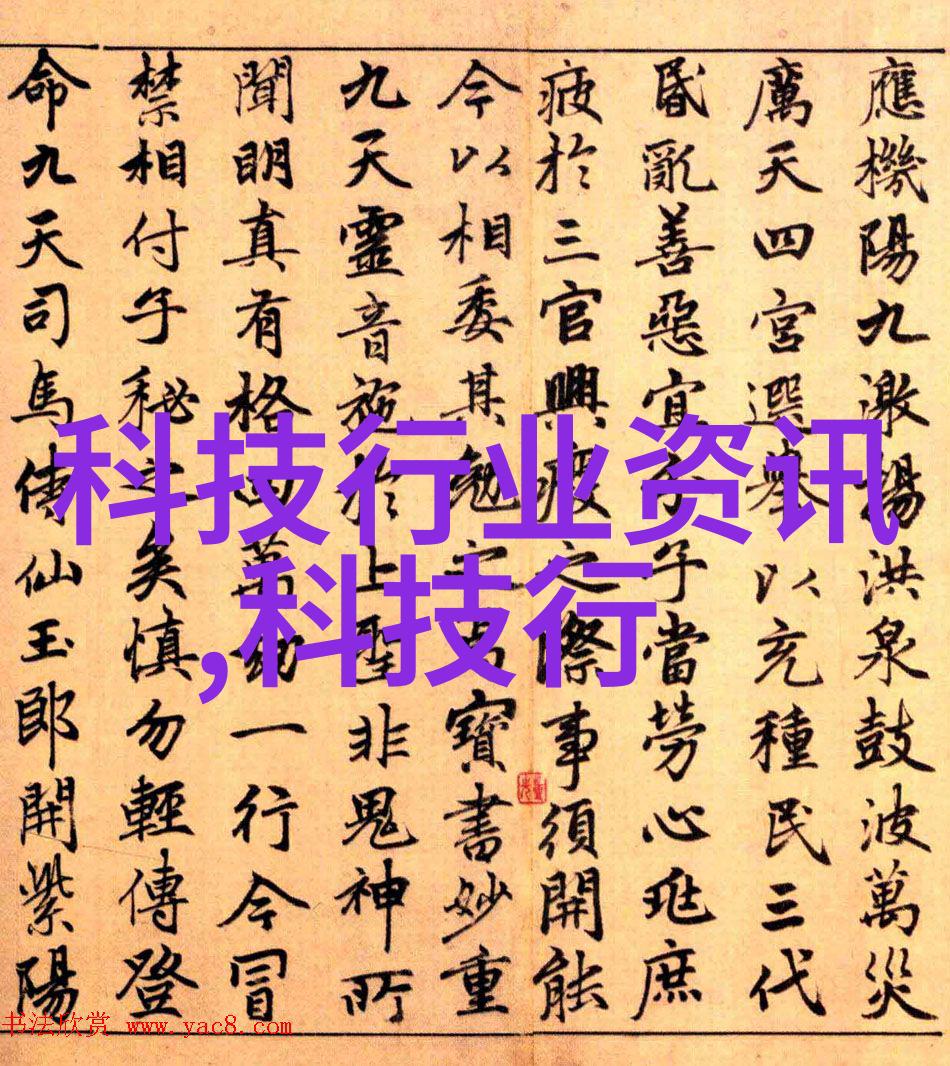 應機陽九激揚洪泉鼓波萬災
厲天四宮選舉以充種民三代
昏亂善惡宜子當勞心拯庶
疲於三官興廢之際事須開能
今以相委其勉寶書妙重
九天靈音施於上聖非鬼神所
聞明真有格一行今冒
禁相付子秘之矣慎勿輕傳登
命九天司馬傳仙玉郎開紫陽
科技行业资讯
,科技行
书法欣赏 www.yac8.com